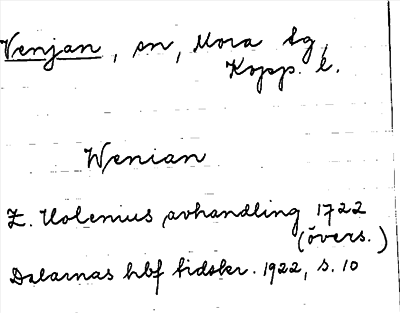 Venjan, sn, Mora dg,
Kopp. l.
Wenian
Z. Holenius avhandling 1722
(övers.)
Dalarnas hbf tidskr. 1922, s. 10